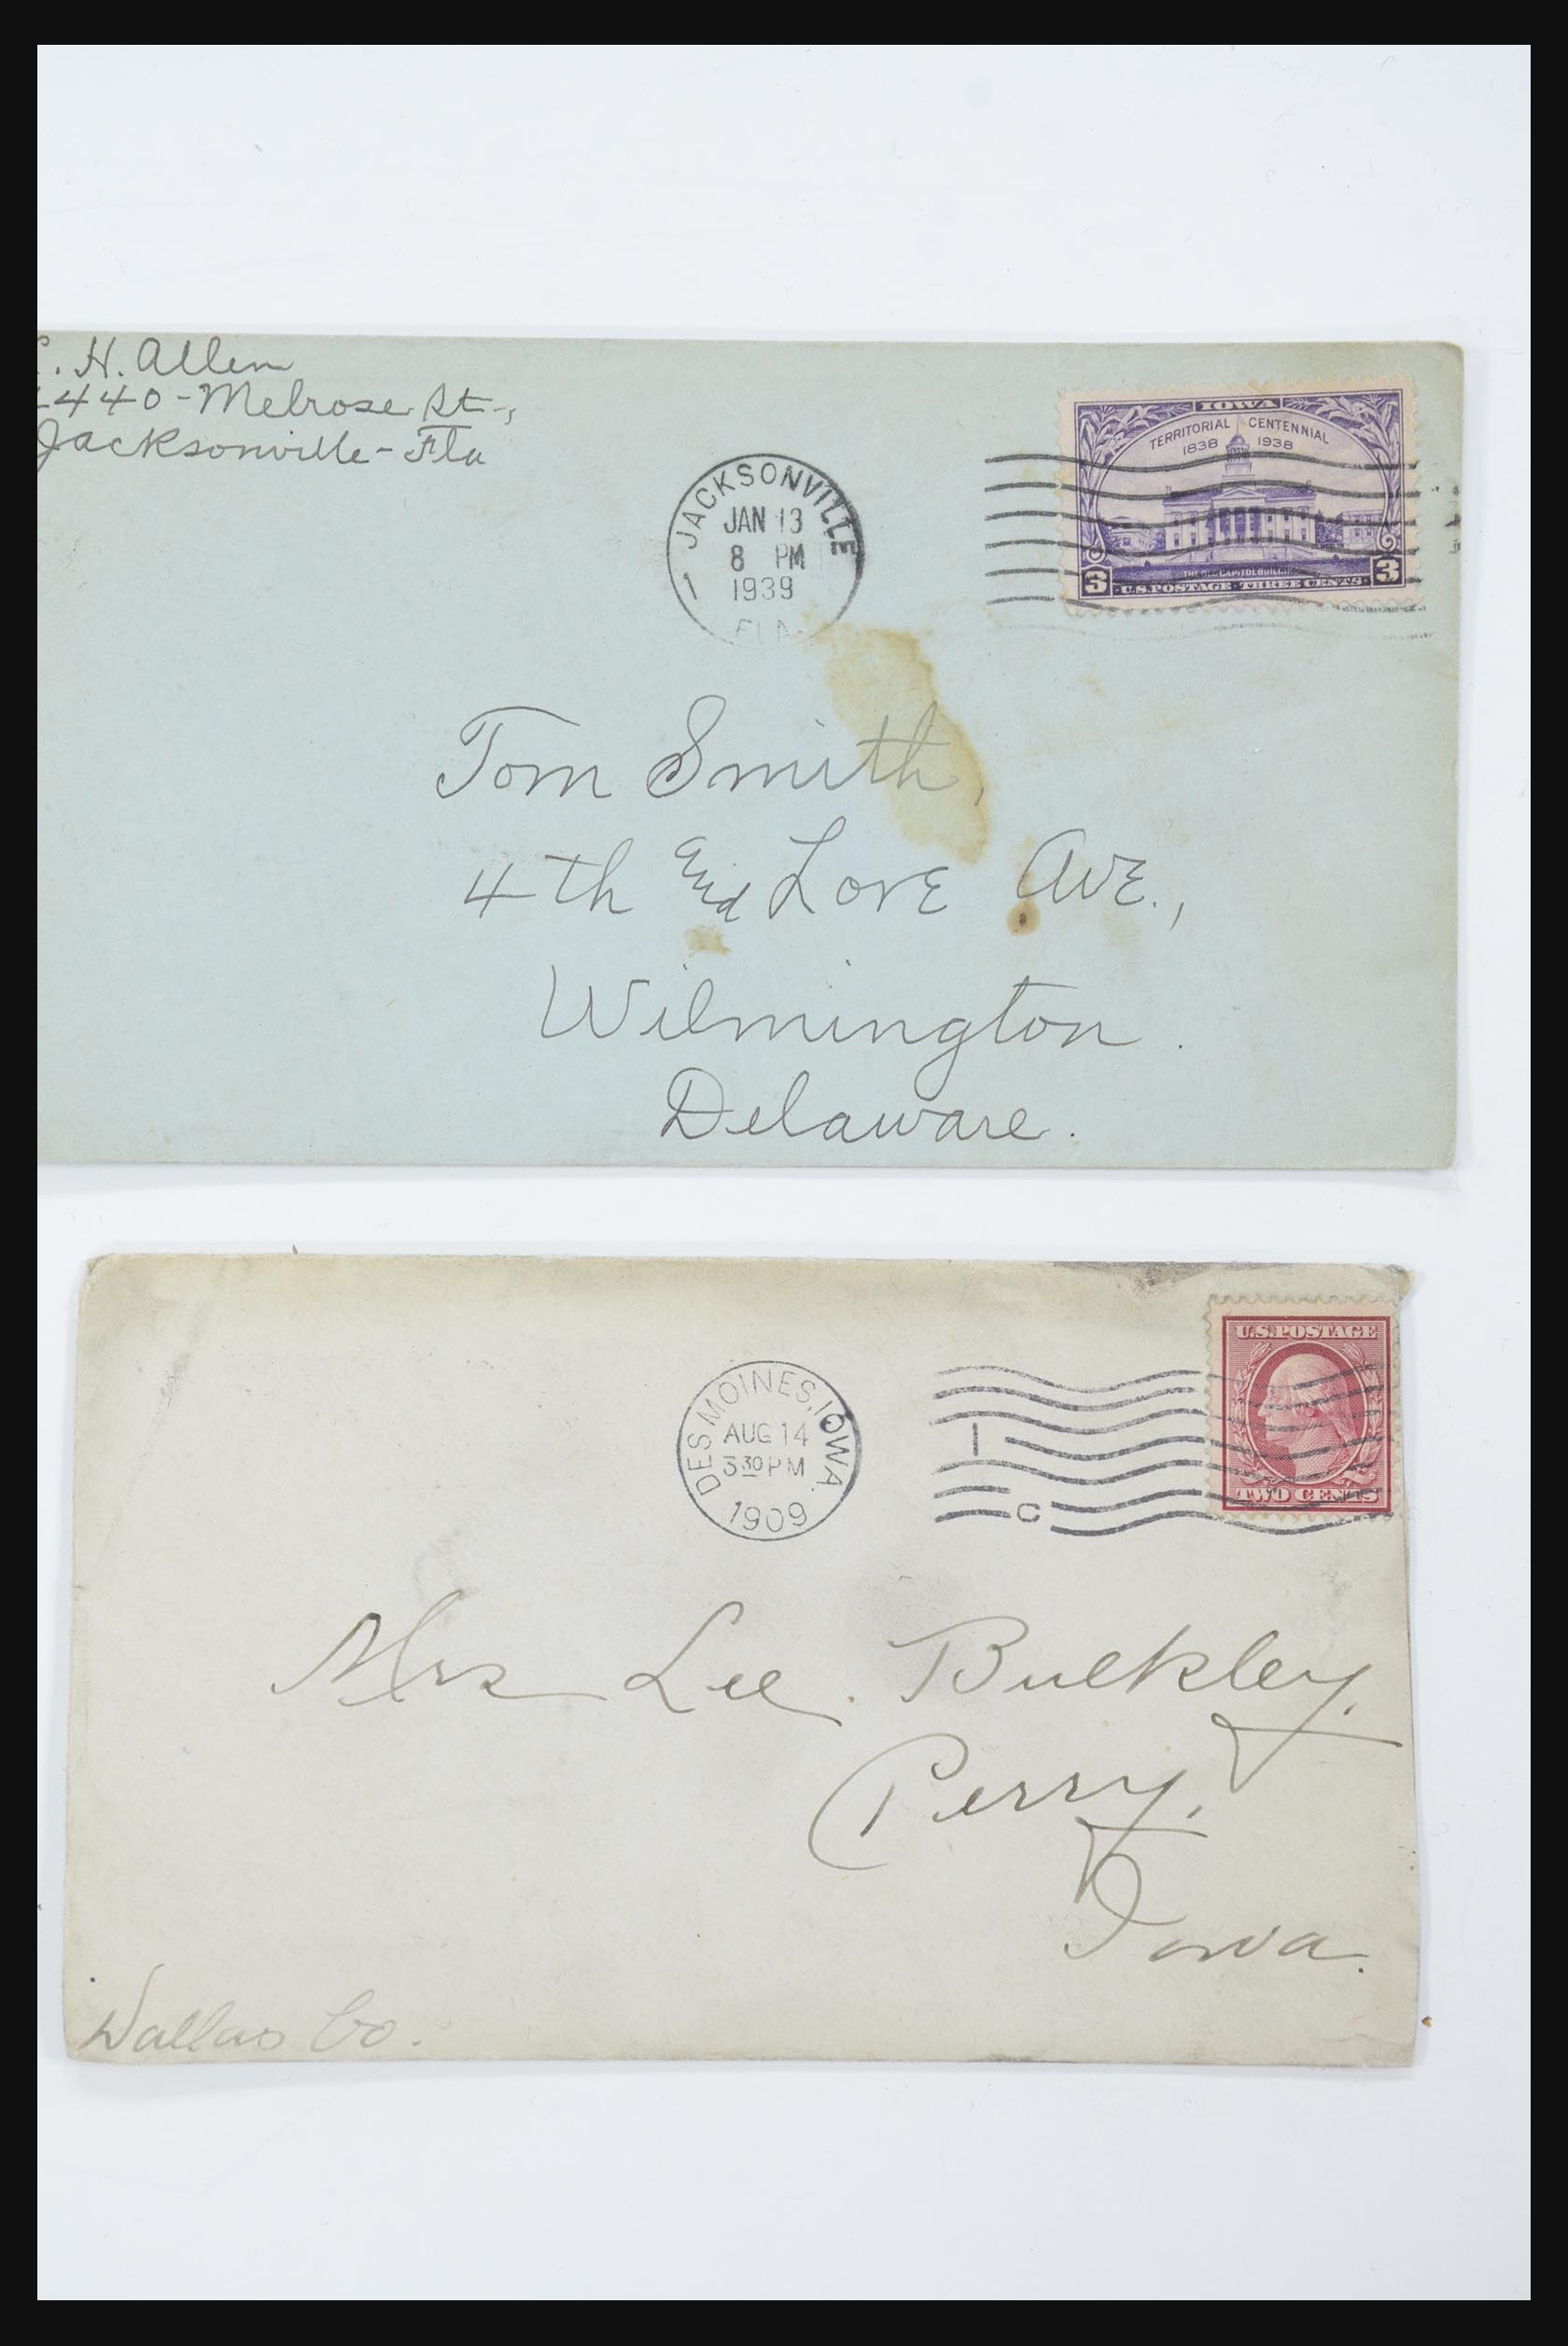 . H. Allen
440-Melrose St.,
Jacksonville-Fla
JACKSONVILLE
JAN 13
8 PM
1939
FLA.
1
IOWA
TERRITORIAL CENTENNIAL
1838 1938
THE OLD CAPITOL BUILDING
3 U.S. POSTAGE · THREE CENTS · 3
Tom Smith,
4th and Love Ave.,
Wilmington.
Delaware.
DES MOINES, IOWA.
AUG 14
3 30 PM
1909
1
C
U.S. POSTAGE
TWO CENTS
Mrs Lee. Bulkley.
Perry,
Iowa.
Dallas Co.